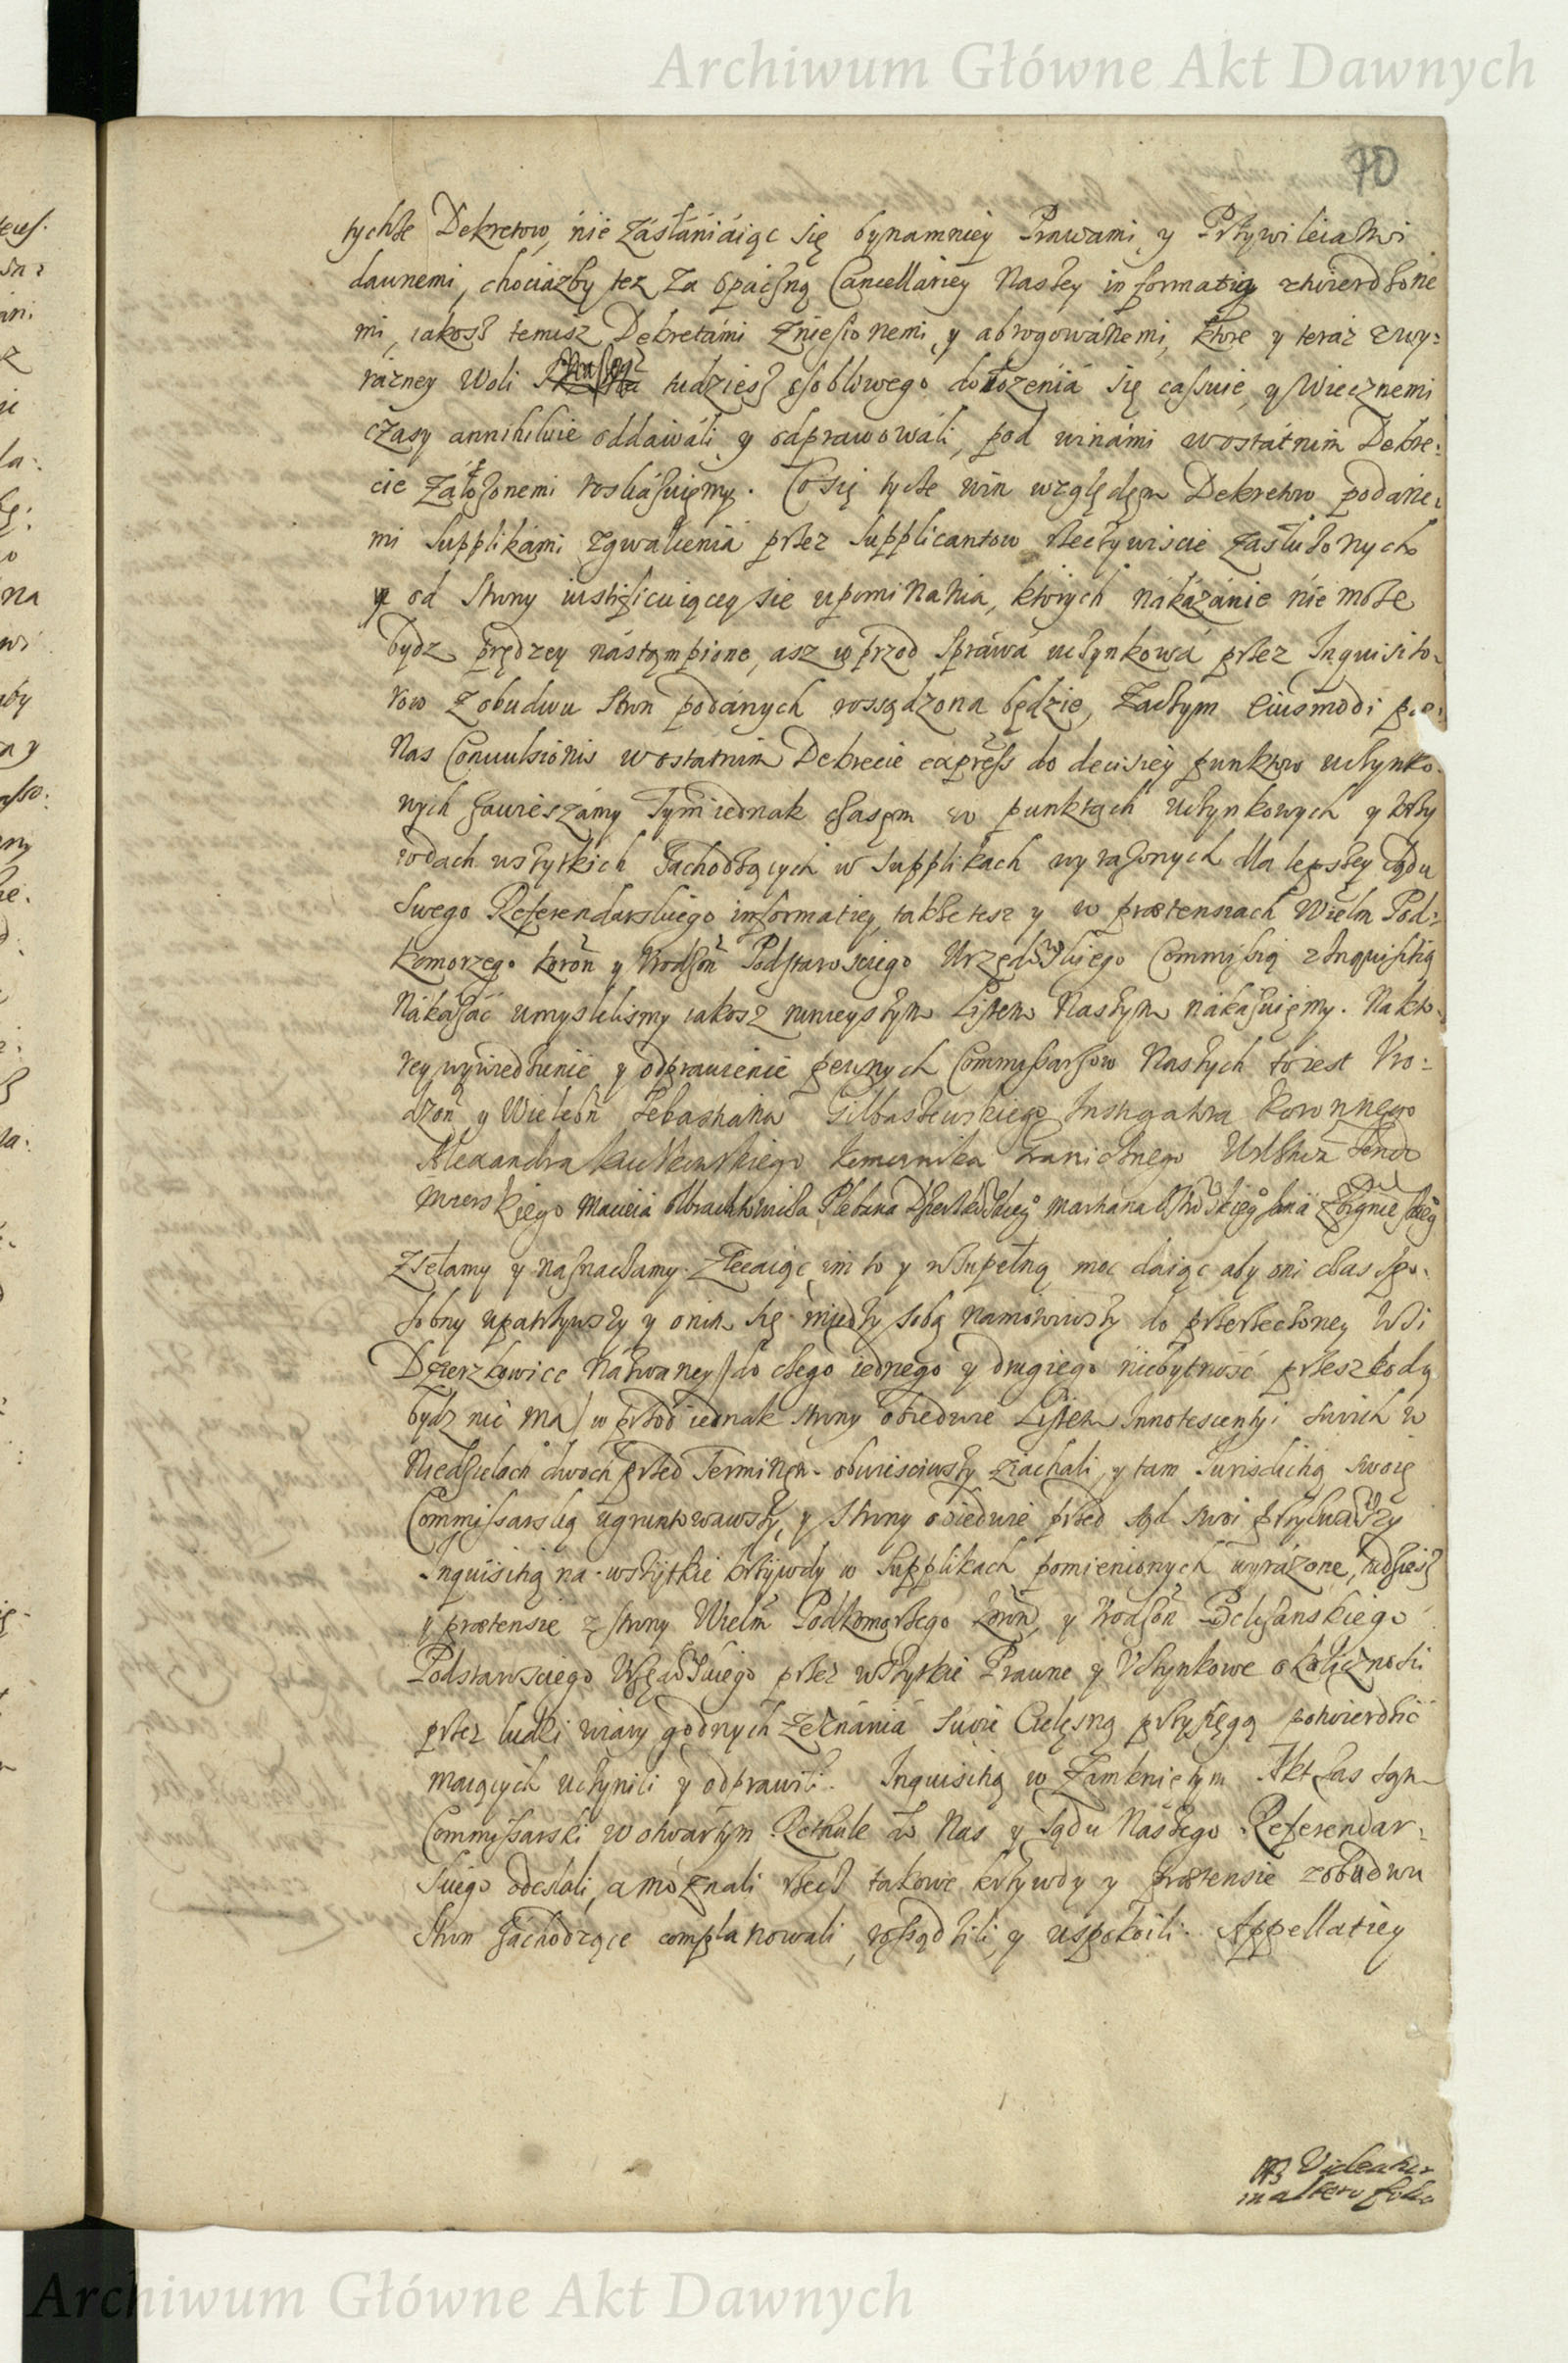 Archiwum Główne Akt Dawnych
70
tychże Dekretow, nie zasłaniaiąc się bynamniey Prawami y Przywileiami
dawnemi, chociażby tez za opaczną Cancellariey Naszey informatią ztwierdzone
mi, iakosz temisz Dekretami zniesionemi, y abrogowanemi, ktore y teraz z wy:
razney Woli Naszey tudziesz osobliwego dołozenia się cassuie, y Wiecznemi
czasy annihiluie oddawali y odprawowali, pod winami w ostatnim Dekre:
cie załozonemi roskazuięmy. Co się tycze win względem Dekretow podane:
mi Supplikami zgwałcenia przez Supplicantow rzeczywiscie zasłuzonych
y od Strony instiguiącey sie upominania, ktorych nakazanie nie moze
bydz prędzey nastąmpione, asz wprzod Sprawa uczynkowa przez Inquisito:
row z obudwu Stron podanych rossądzona będzie, Zaczym eiusmodi
nas Convulsionis w ostatnim Dekrecie express do decisiey punktow uczynko:
wych zawieszamy Tym iednak czasem w punktach uczynkowych y krzy
wdach wszytkich zachodzących w Supplikach wyrazonych dla lepszey Sądu
Swego Referendarskiego informatiey, takze tesz y w praetensiach Wielm Pod:
Komorzego Koron y Urodzon Podstarosciego Urzędowskiego Commissią z Inquisitią
Nakazac umyslilismy iakosz ninieyszym Listem Naszym nakazuięmy. Na kto:
rey wywiedzienie y odprawienie pewnych Commissarzow Naszych to iest Uro:
dzon y Wieleбn Sebastiana Gilbaszewskiego Instigatora Koronnego
Alexandra Komornika Granicznego Urzędn Sendo
mirskiego Macieia Olbrachtowicza Plebana Dzierzkowskiego Marcina
Zsełamy y naznaczamy. Zlecaiąc im to y w zupełną moc daiąc aby oni czas spo:
sobny upatrzywszy y onim się między sobą namowiwszy do przerzeczoney Wsi
Dzierzkowice Nazwaney (do czego iednego y drugiego niebytność przeszkodą
bydz nie ma) w przod iednak strony obiedwie Listem Innotescentyi swich w
Niedzielach dwoch przed Terminem obwiesciwszy ziachali, y tam Iurisdictią swoię
Commissarską ugruntowawszy, y Strony obiedwie przed sąd swoi przyzwawszy
Inquisitią na wszytkie krzywdy w Supplikach pomienionych wyrażone, tudziesz
y praetensie z strony Wielm Podkomorzego Koron, y Urodzon Belzanskiego
Podstarosciego Urzędowskiego przez wszytkie Prawne y Uczynkowe okolicznosci
przez ludzi wiary godnych zeznania swoie Cielęsną przysięgą potwierdzić
maiących uczynili y odprawili. Inquisitią w zamknietym Akt zas tąm
Commissarski w otwartym Rotule do Nas y Sądu Naszego Referendar:
skiego odesłali, a moznali rzecz takowe krzywdy y praetensie z obudwu
Stron zachodzące complanowali, rossądzili, y uspokoili. Appellatiey
Videatur
in altero folio
Archiwum Główne Akt Dawnych